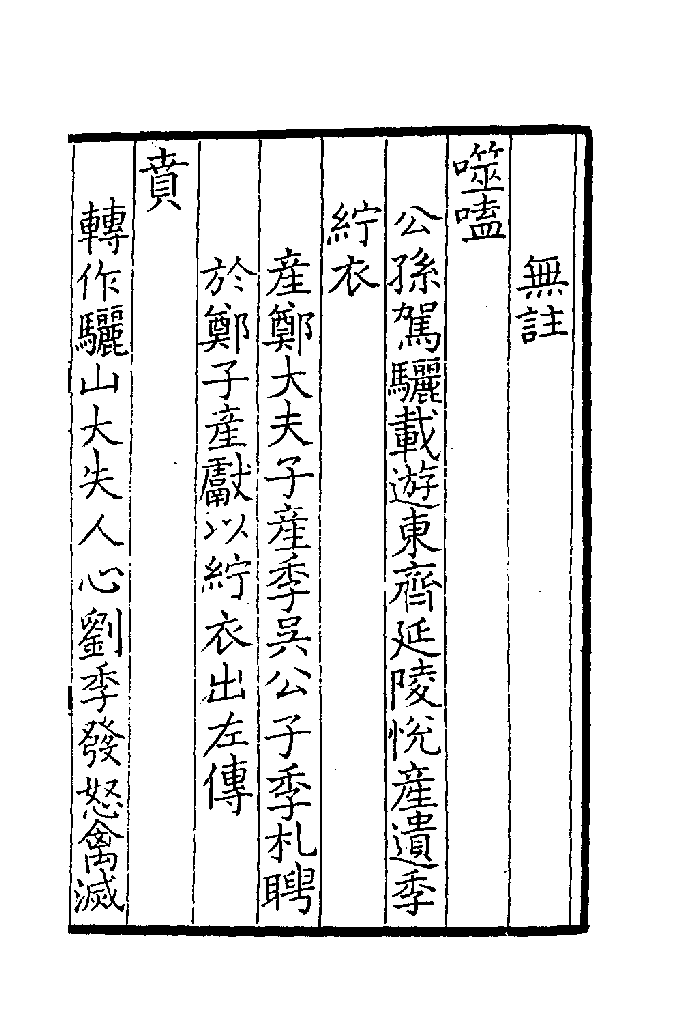 無註
噬嗑
公孫駕驪載遊東齊延陵悅產遺季
紵衣
產鄭大夫子產季吳公子季札聘
於鄭子產獻以紵衣出左傳
賁
轉作驪山大失人心劉季發怒禽滅